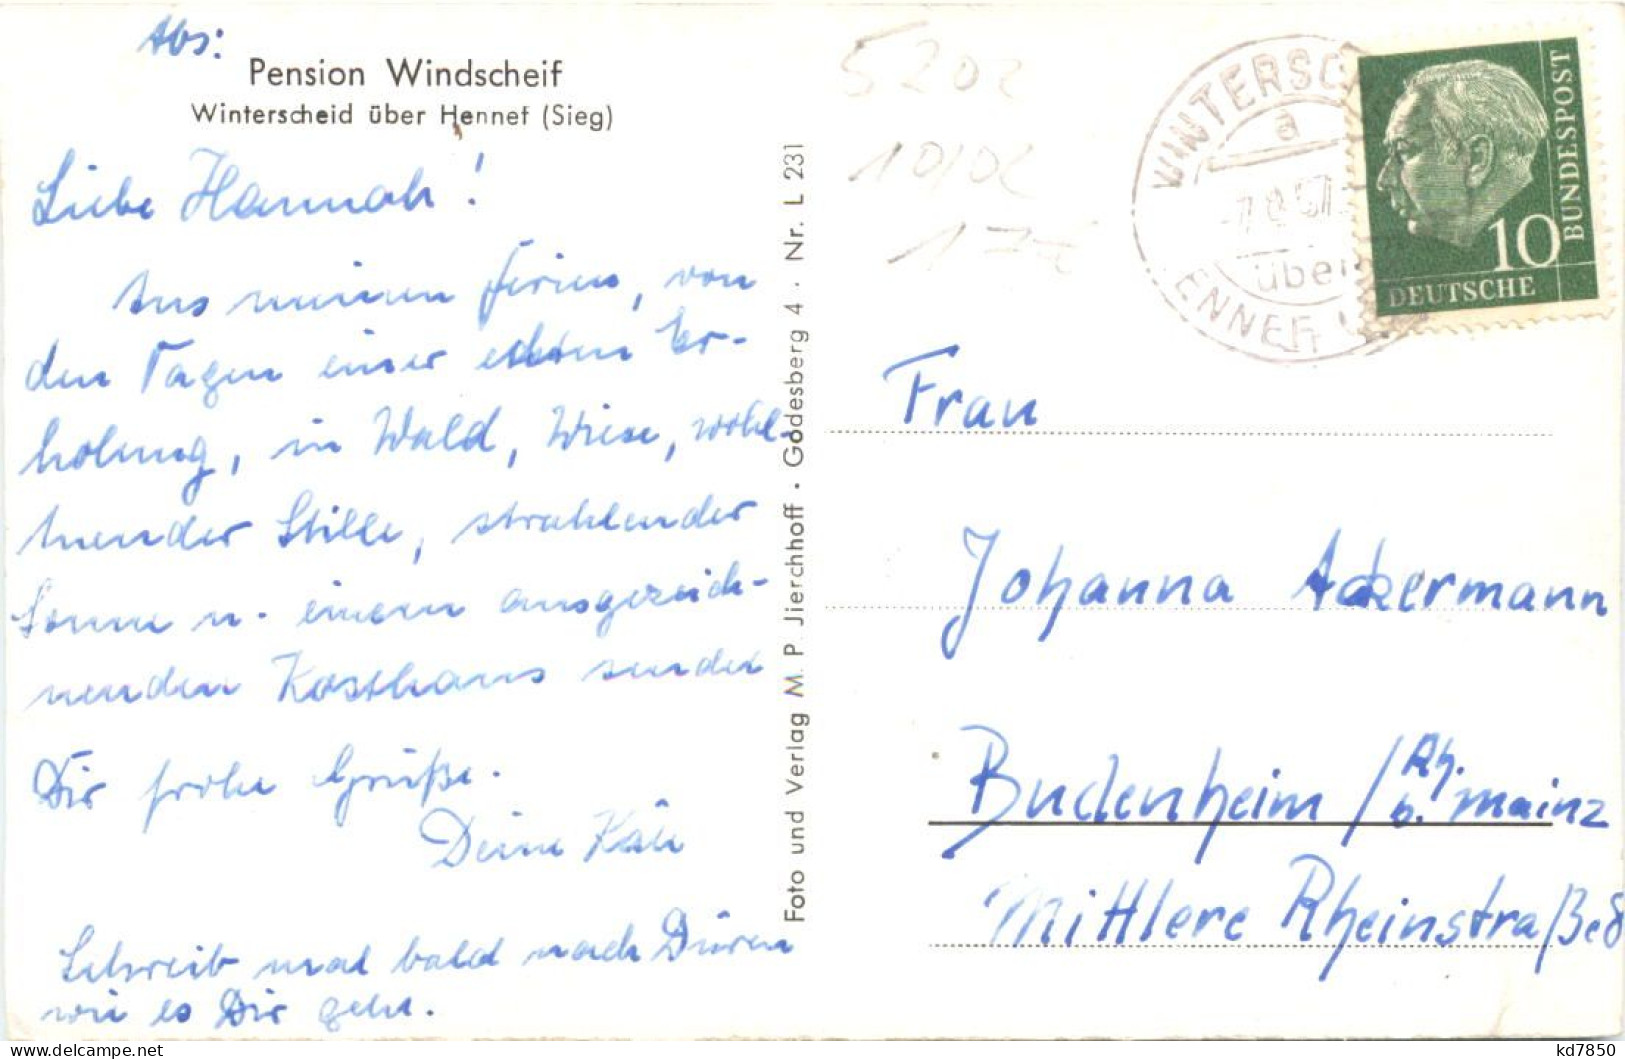 Abs:
Pension Windscheif
Winterscheid über Hennef (Sieg)
Liebe Hannah!
Aus meinen Ferien, von
den Tagen einer echten Er-
holung, in Wald, Wiese, wohl-
tuender Stille, strahlender
Sonne u. einem ausgezeich-
nenden Kosthaus sendet
Dir frohe Grüße.
Deine Käte
Schreib mal bald nach Düren
wie es Dir geht.
Foto und Verlag M. P. Jierchhoff · Godesberg 4 · Nr. L 231
5202
10/02
17€
WINTERSC
a
über
ENNEF
10
DEUTSCHE
BUNDESPOST
Frau
Johanna Ackermann
Budenheim / Rh.
b. Mainz
Mittlere Rheinstraße 8
kd7850